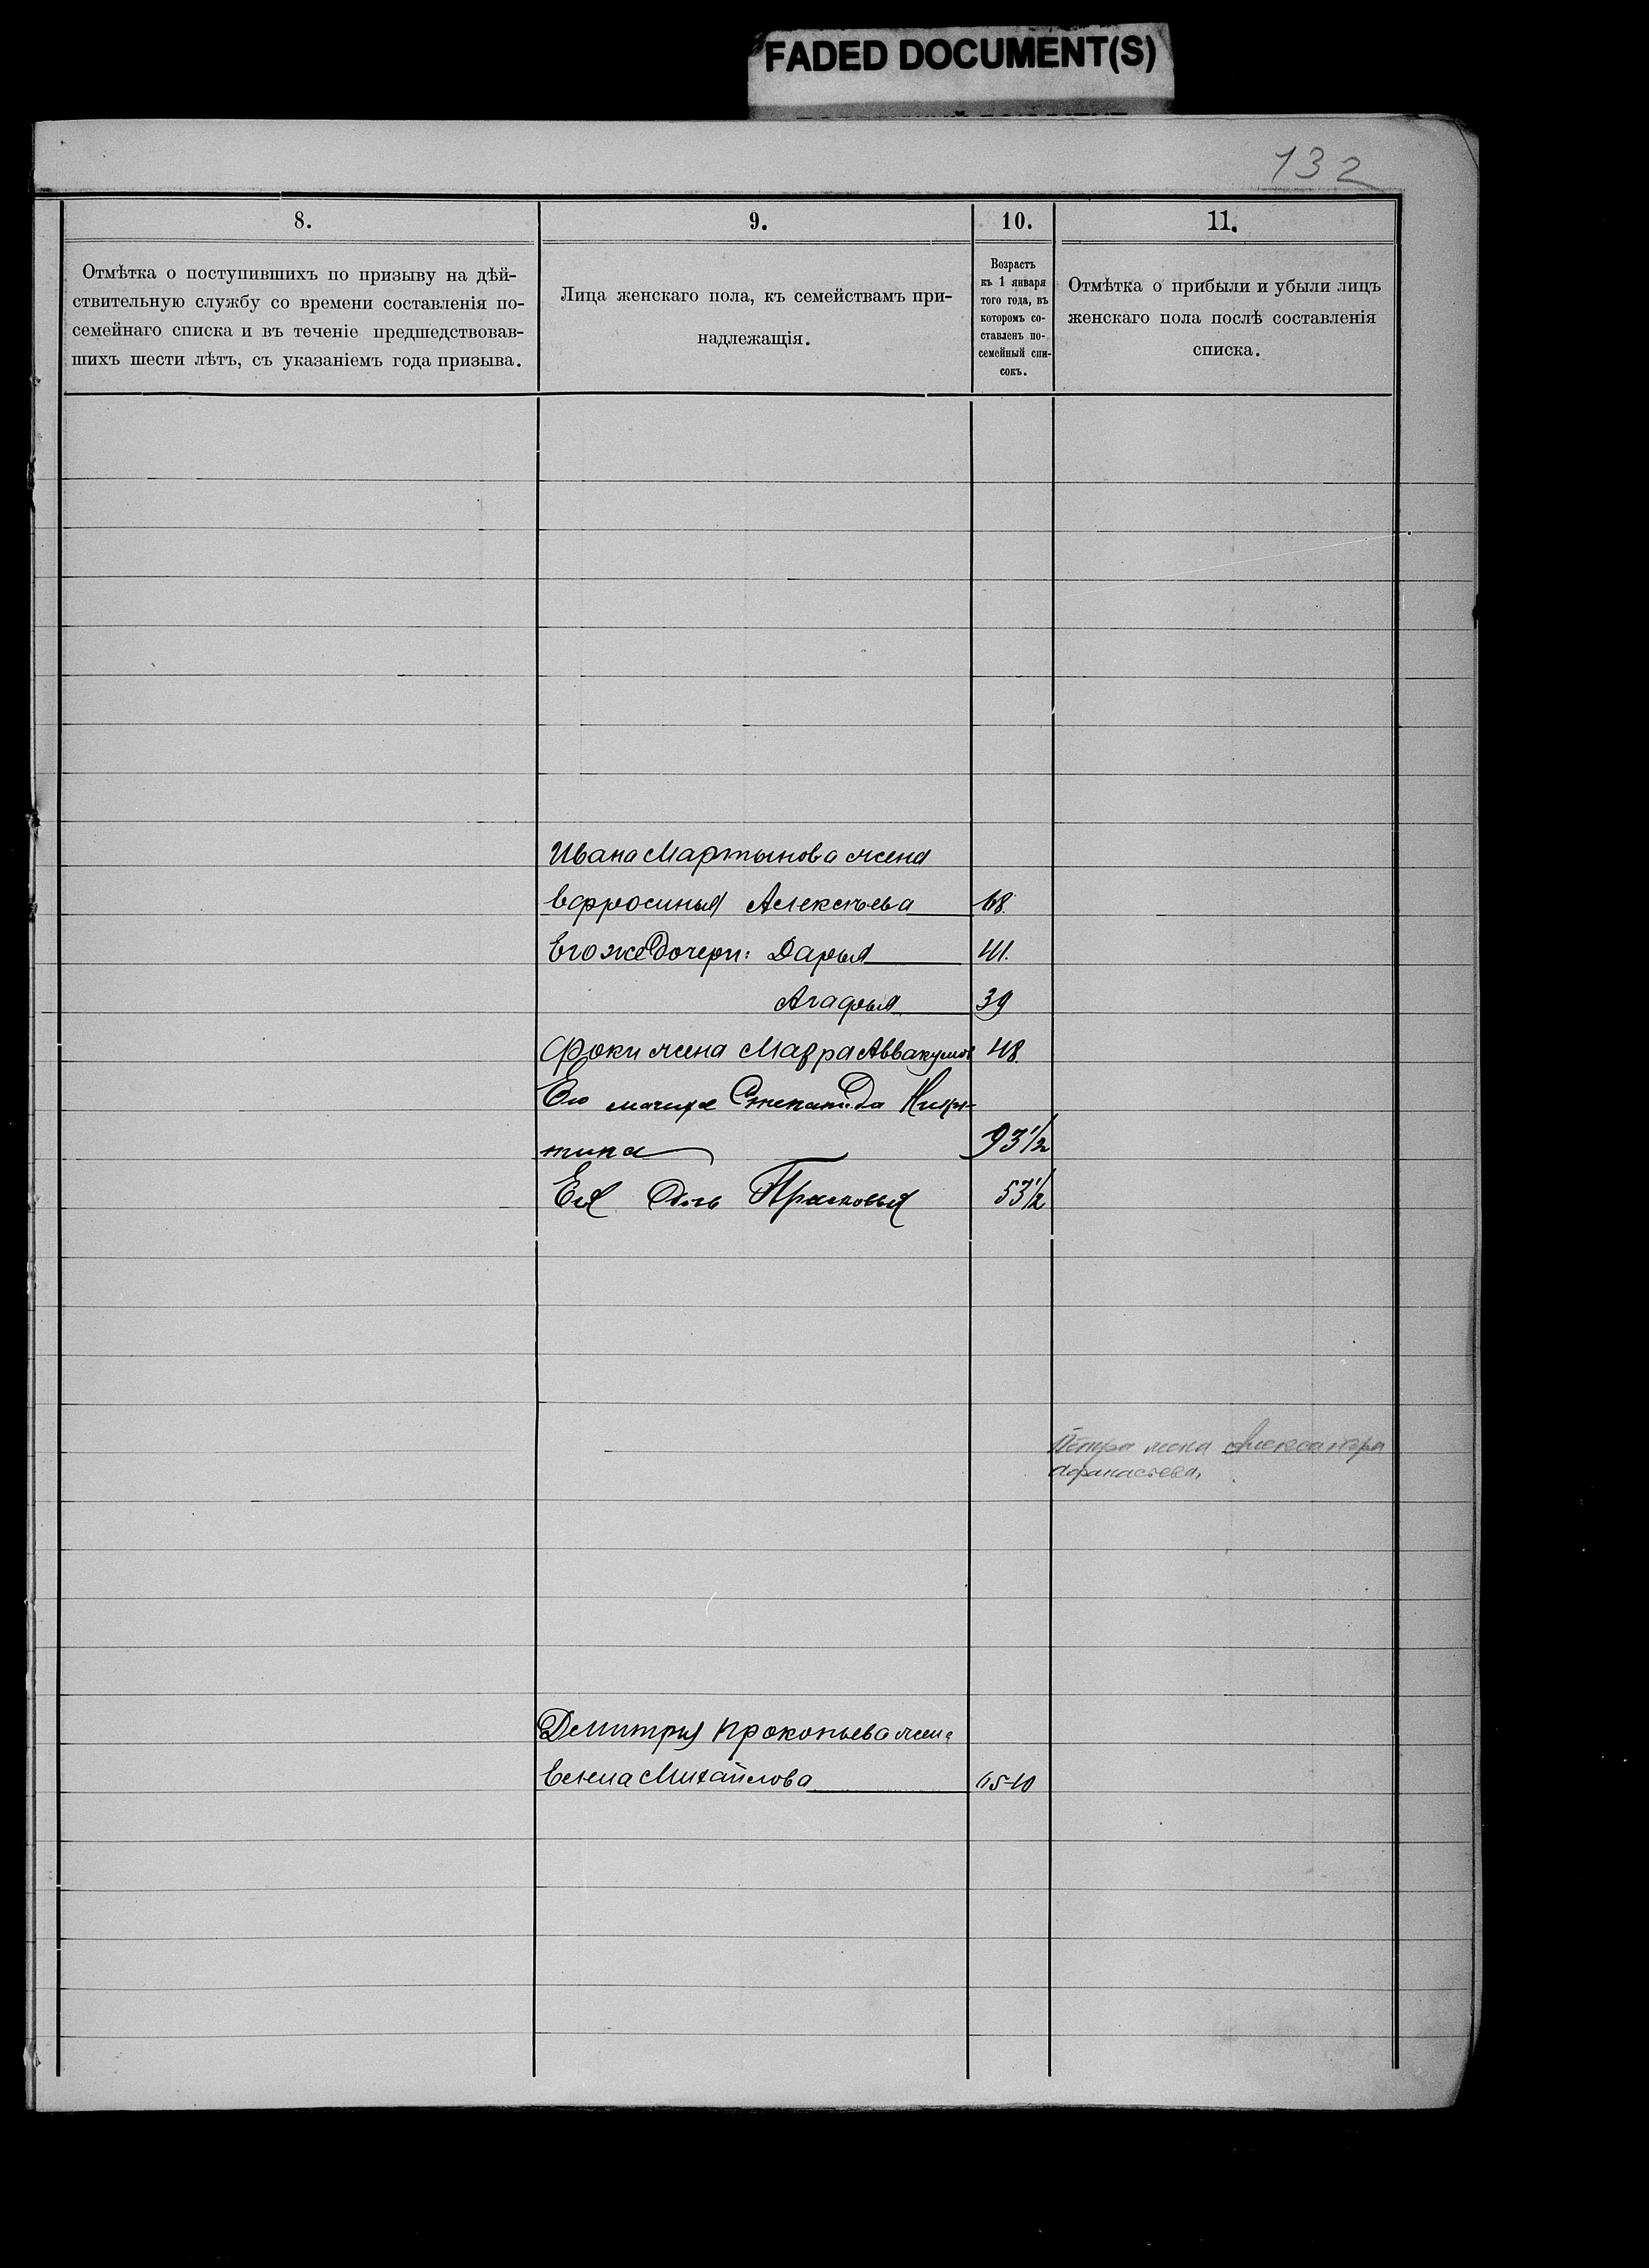 FADED DOCUMENT(S)
132
8.
9.
10.
11.
Отмѣтка о поступившихъ по призыву на дѣй-
ствительную службу со времени составленія по-
семейнаго списка и въ теченіе предшедствовав-
шихъ шести лѣтъ, съ указаніемъ года призыва.
Лица женскаго пола, къ семействамъ при-
надлежащія.
Возрастъ
къ 1 января
того года, въ
которомъ со-
ставленъ по-
семейный спи-
сокъ.
Отмѣтка о прибыли и убыли лицъ
женскаго пола послѣ составленія
списка.
Ивана Мартынова жена
Ефросинья Алексѣева 68.
Его же дочери: Дарья 41.
Агафья 39
Фоки жена Мавра Аввакумов 48.
Его мачиха Степанида Ники-
тина 93 1/2
Ея дочь Прасковья 53 1/2
Петра жена Александра
Афанасьева.
Дмитрія Прокопьева жена
Елена Михайлова